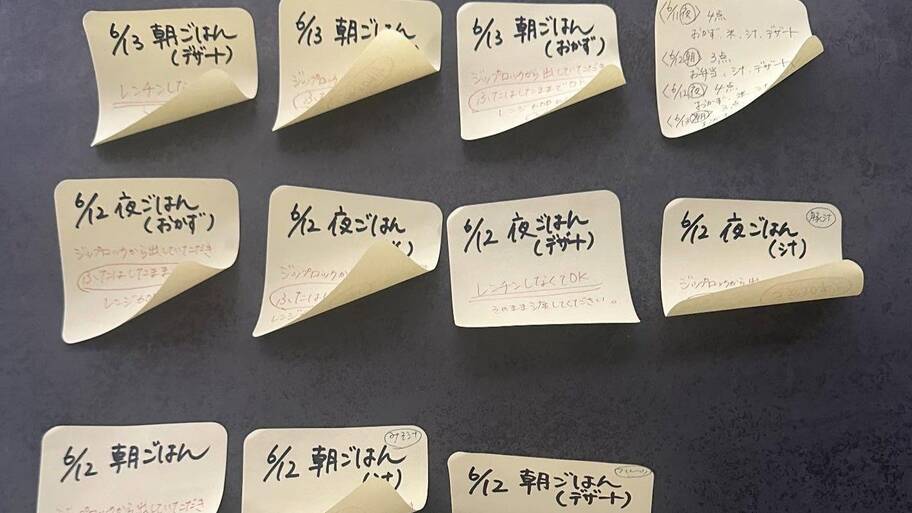 6/13 朝ごはん
(デザート)
レンチンしな
6/13 朝ごはん
ジップロックから
6/13 朝ごはん
(おかず)
ジップロックから出していただき
ふたはしたままでOK
レンジ
〈6/11夜〉 4点
おかず、米、汁、デザート
〈6/12朝〉 3点
お弁当、汁、デザート
〈6/12夜〉 4点
おかず、米
〈6/13朝〉
6/12 夜ごはん
(おかず)
ジップロックから出していただき
ふたはしたまま
レンジ
6/12 夜ごはん
ジップロックか
ふたは
レンジ
6/12 夜ごはん
(デザート)
レンチンしなくてOK
そのまま出してください。
6/12 夜ごはん
豚汁
(汁)
ジップロックから出
6/12 朝ごはん
ジップロックから出していただき
6/12 朝ごはん
みそ汁
6/12 朝ごはん
(デザート)